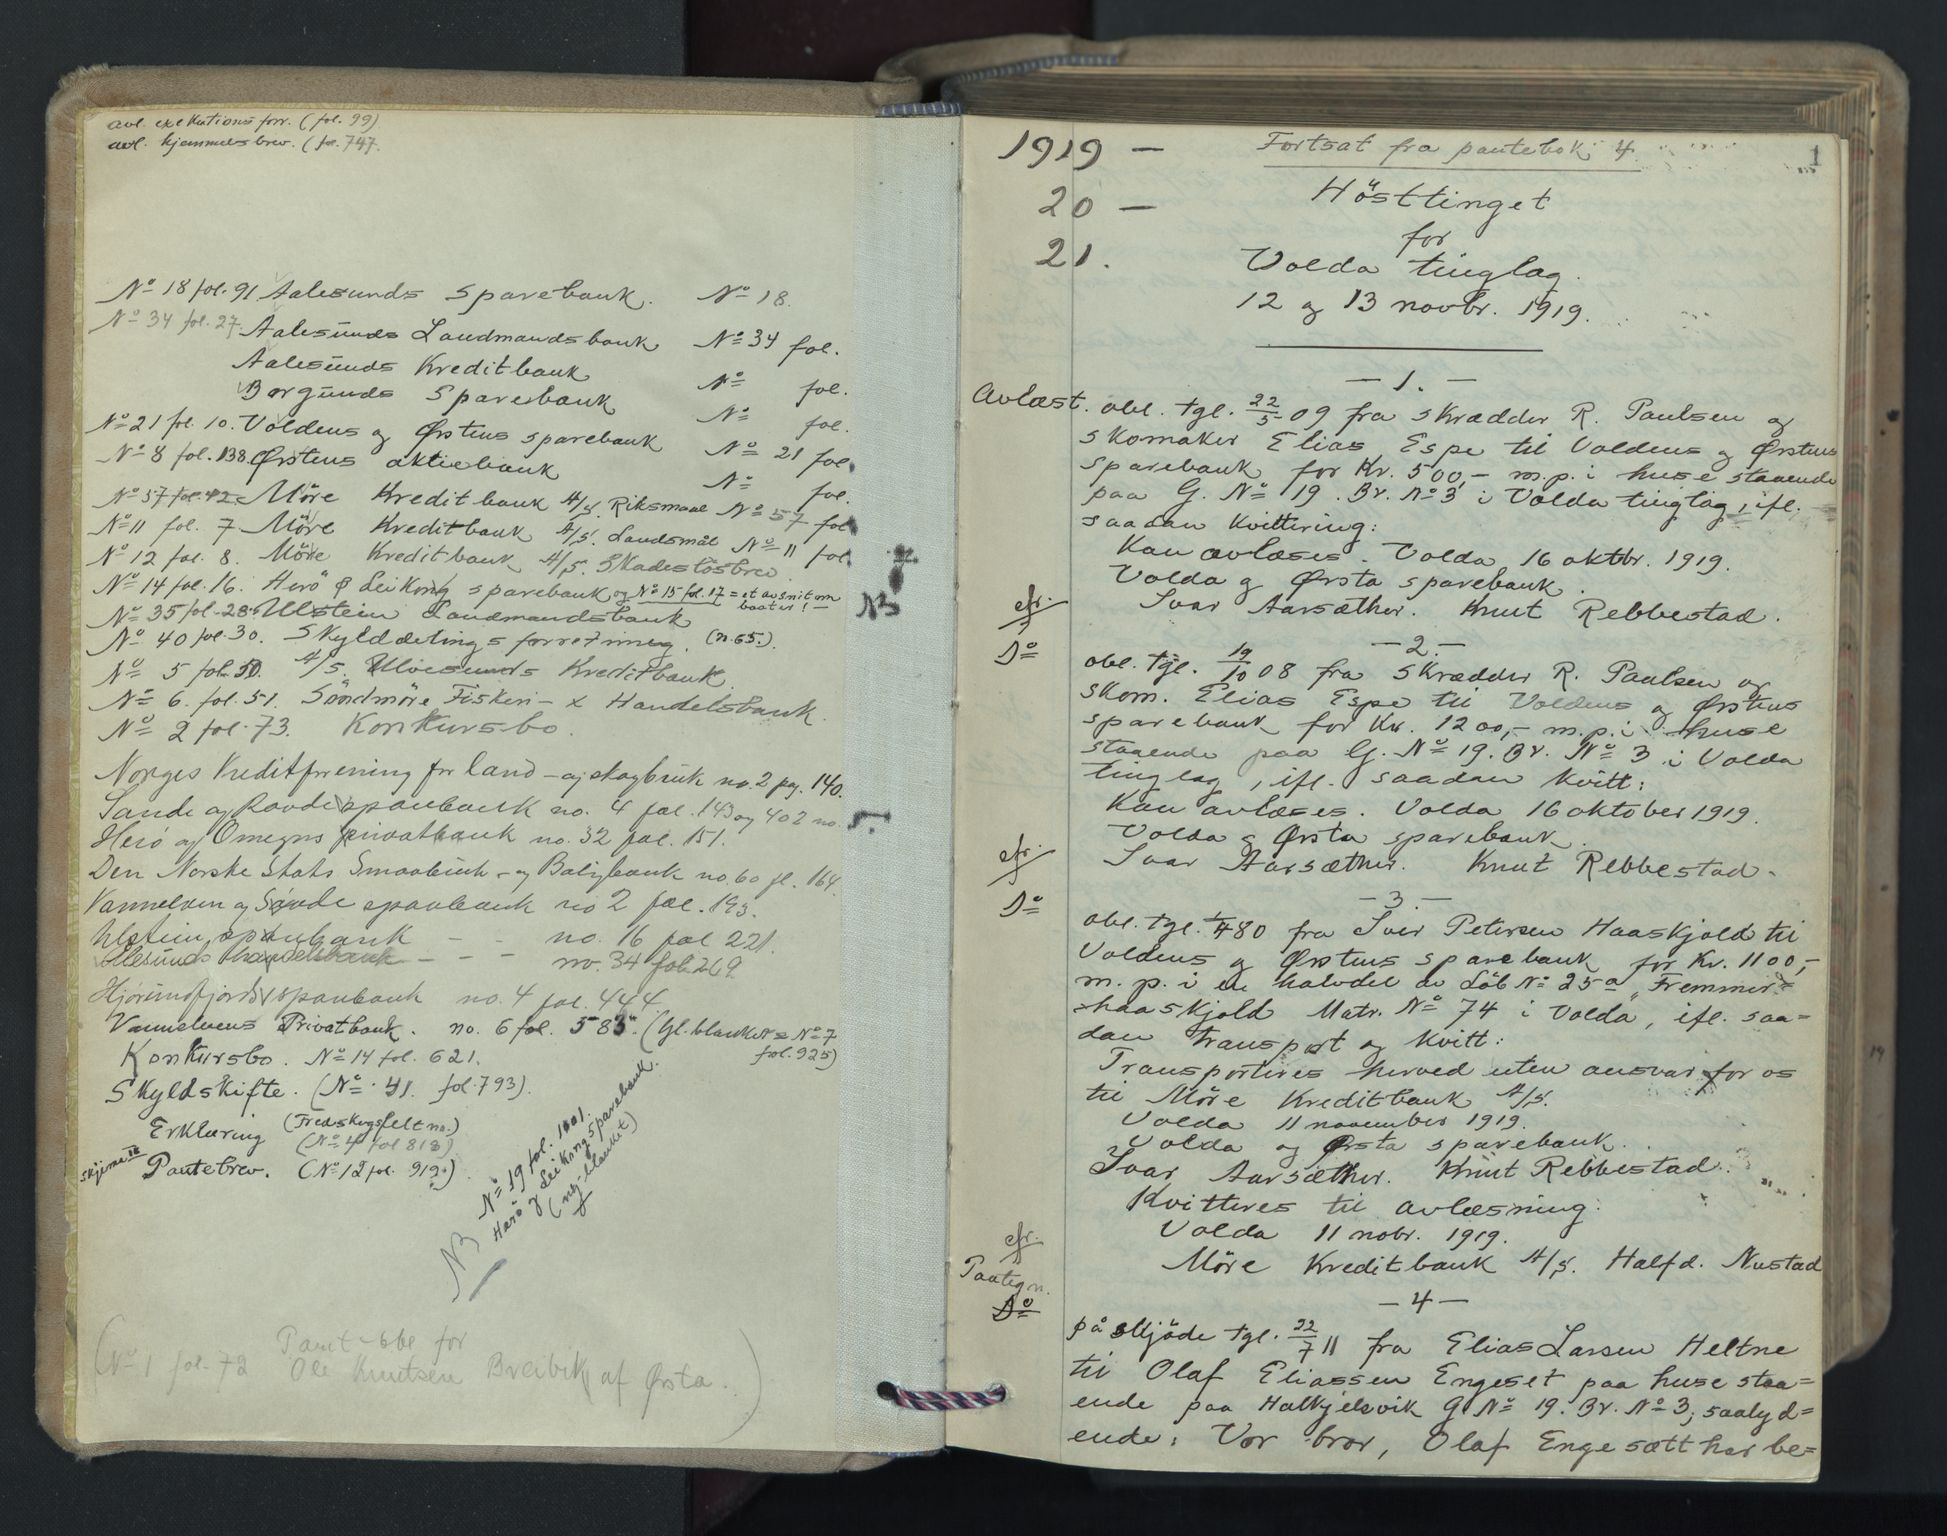 avl. exekutions forr. (fol. 99)
avl. hjemmelsbrev. (fol. 747.
No 18 fol. 91 Aalesunds Sparebank. No 18.
No 34 fol. 27. Aalesunds Landmandsbank No 34 fol.
Aalesunds Kreditbank No fol.
Borgunds Sparebank No fol.
No 21 fol. 10. Voldens og Ørstens sparebank No 21 fol.
No 8 fol. 138. Ørstens aktiebank No fol.
No 57 fol. 42 Möre Kreditbank A/S Riksmaal No 57 fol
No 11 fol. 7 Möre Kreditbank A/S. Landsmål No 11 fol
No 12 fol. 8. Möre Kreditbank A/S. Skadeslösbrev.
No 14 fol. 16. Herö & Leikong sparebank og No 15 fol. 17 = et avsnit om baater! —
No 35 fol. 28 Ulstein Landmandsbank
NB
No 40 fol. 30. Skylddelings forretning. (n. 65.)
No 5 fol. 50. A/S. Ulvesunds Kreditbank.
No 6. fol. 51. Söndmöre Fiskeri- & Handelsbank.
No 2 fol. 73. Konkursbo.
Norges Kreditforening for land- og skogbruk no. 2 pg. 140.
Sande og Rovde sparebank no. 4 fol. 143 og 402 no. 5.
Herö og Omegns privatbank no. 32 fol. 151.
Den Norske Stats Smaabruk- og Boligbank no. 60 fl. 164.
Vannelven og Syvde sparebank no 2 fol. 193.
Ulstein sparebank - - no. 16 fol 221.
Ålesunds handelsbank - - - no. 34 fol. 269
Hjørundfjords sparebank no. 4 fol. 444.
Vannelvens Privatbank. no. 6 fol. 583. (Gl. blankett = No 7
fol. 925)
Konkursbo. No 14 fol. 621.
Skyldskifte. (No 41. fol. 793).
Erklæring (Fredskogsfelt no.)
(No 4 fol 818)
skjema IV Pantebrev. (No 12 fol. 919.)
NB
No 19 fol. 1001.
Herö og Leikong sparebank.
(ny blanket)
(No 1 fol. 72 Pant-obl for
Ole Knutsen Breivik af Ørsta.)
1919 —
20 —
21.
Fortsat fra pantebok 4.
1
Hösttinget
for
Volda tinglag.
12 og 13 novbr. 1919.
— 1. —
Avlæst. obl. tgl. 22/5 09 fra skrædder R. Paulsen og
skomaker Elias Espe til Voldens og Ørstens
sparebank for Kr. 500,- m.p. i huse staaende
paa G. No 19. Br. No 3 i Volda tinglag, ifl.
saadan kvittering:
Kan avlæses. Volda 16 oktbr. 1919.
Volda og Ørsta sparebank.
cfr. Ivar Aarsæther. Knut Rebbestad.
— 2. —
Do obl. tgl. 19/10 08 fra skrædder R. Paulsen og
skom. Elias Espe til Voldens og Ørstens
sparebank for Kr. 1200,- m.p. i huse
staaende paa G. No 19. Br. No 3 i Volda
tinglag, ifl. saadan kvitt:
Kan avlæses. Volda 16 oktober 1919.
Volda og Ørsta sparebank.
cfr. Ivar Aarsæther. Knut Rebbestad.
— 3. —
Do obl. tgl. 80 fra Iver Petersen Haaskjold til
Voldens og Ørstens sparebank for Kr. 1100,-
m.p. i en halvdel av Löb No 25a "Fremmer=
haaskjold Matr. No 74 i Volda", ifl. saa=
dan transport og kvitt:
Transporteres herved uten ansvar for os
til Möre Kreditbank A/S.
Volda 11 november 1919.
Volda og Ørsta sparebank.
Ivar Aarsæther. Knut Rebbestad.
Kvitteres til avlæsning.
Volda 11 nobr. 1919.
cfr. Möre Kreditbank A/S. Halfd. Nustad
— 4 —
Paategn.
Do
på skjöde tgl. 22/7 11 fra Elias Larsen Heltne
til Olaf Eliassen Engeset paa huse staa=
ende paa Halkjelsvik G No 19. Br. No 3, saalyd=
ende: Vor bror, Olaf Engesætt har be=